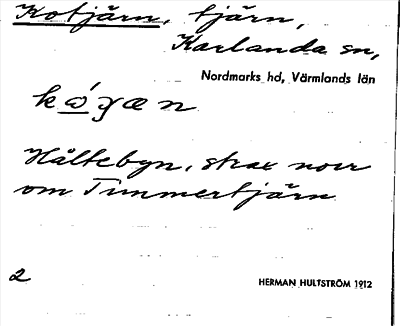 Kotjärn, tjärn,
Karlanda sn,
Nordmarks hd, Värmlands län
Håltebyn, strax norr
om Timmertjärn
2
HERMAN HULTSTRÖM 1912